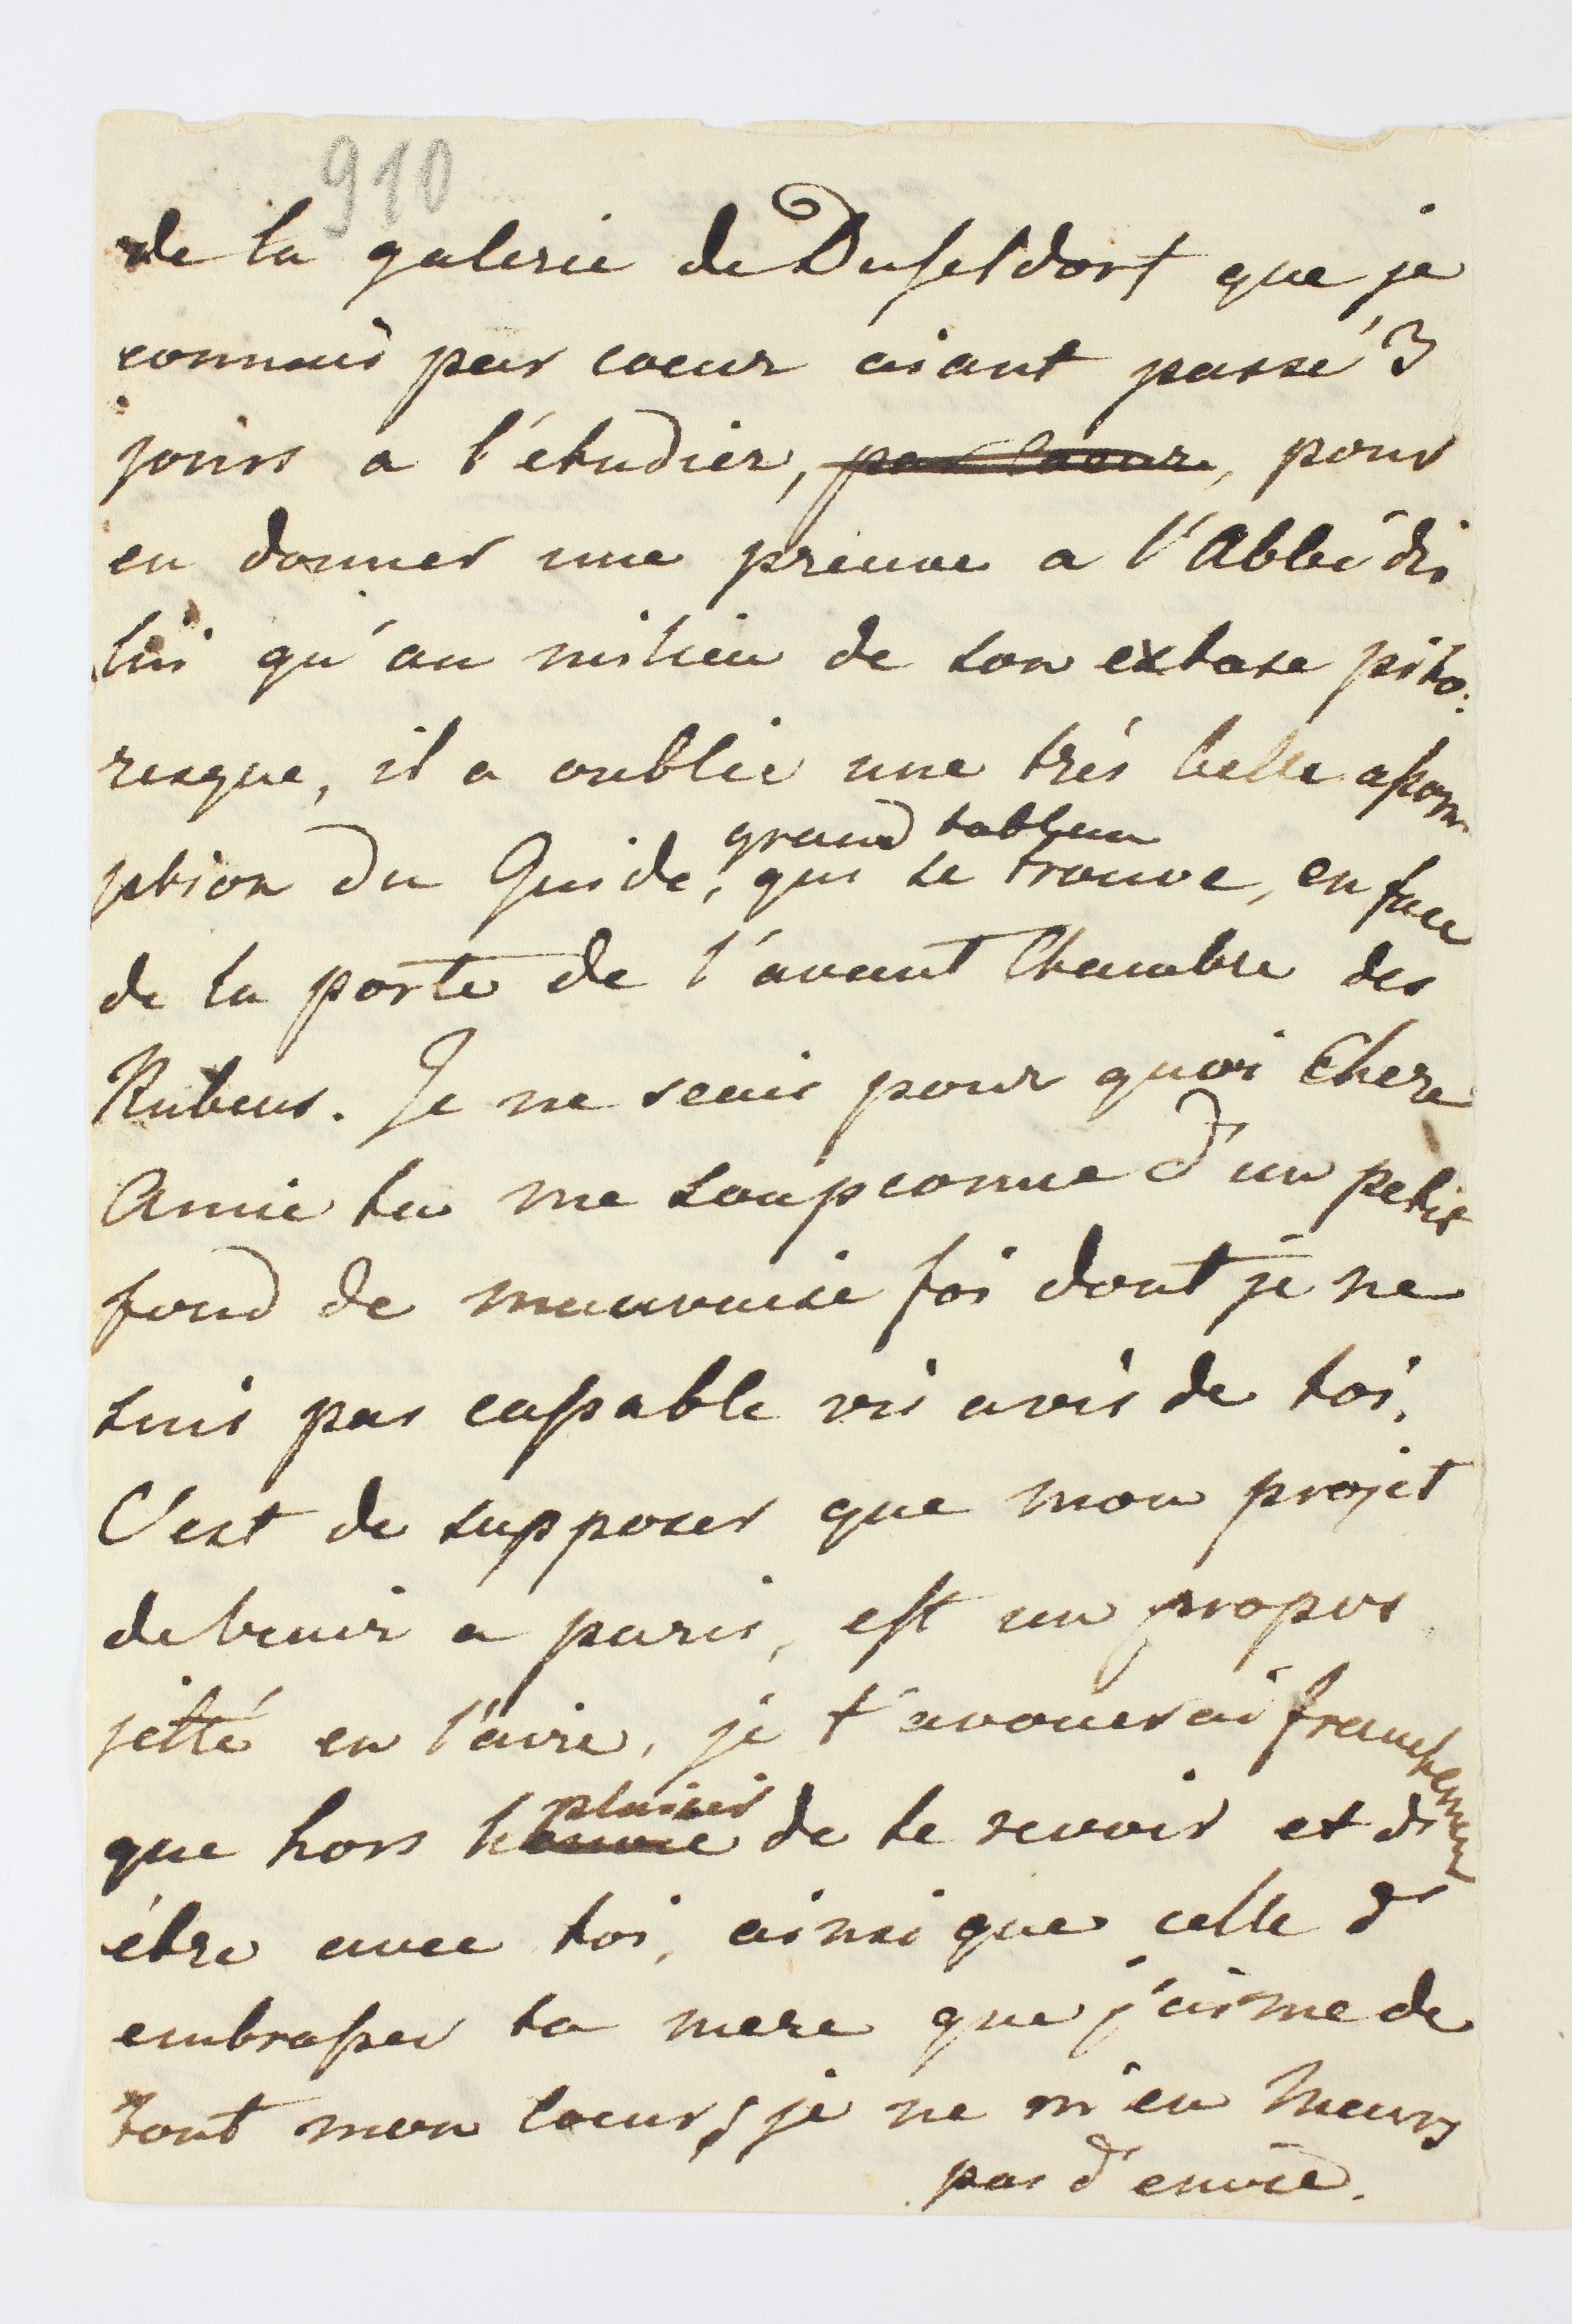 910
de la galerie de Dusseldorf que je
connais par coeur aiant passé 3
jours a l'étudier, par coeur, pour
en donner une preuve a l'Abbé di
lui qu'au milieu de son extase pito:
resque, il a oublie une très belle assom
ption du Guide, grand tableau qui se trouve, en face
de la porte de l'avant Chambre des
Rubens. Je ne scais pour quoi Chere
Amie tu me soupconne d'un petit
fond de mauvaise foi dont je ne
suis pas capable vis avis de toi.
C'est de supposer que mon projet
de venir a paris, est un propos
jetté en l'aire, je t'avouerai franchement
que hors le plaisir de te revoir et d'
être avec toi, ainsi que celle d'
embrasser ta mere que j'aime de
tout mon coeur, je ne m'en meurs
pas d'envie.